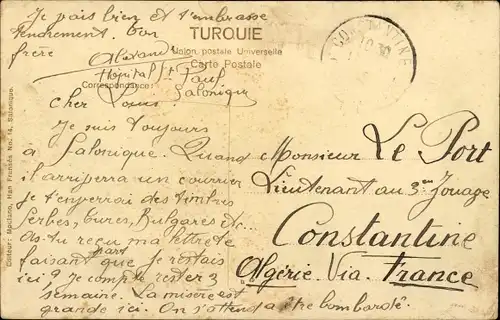 Je vais bien et t'embrasse
tendrement. Ton
frère
Hôpital St Paul
Salonique
TURQUIE
Union postale Universelle
Carte Postale
Correspondance
CONSTANTINE
Cher Louis.
Je suis toujours
à Salonique. Quand
il arrivera un courrier
je t'enverrai des timbres
Serbes, Turcs, Bulgares etc..
As-tu reçu ma lettre te
faisant part que je restais
ici? Je compte rester 3
semaine. La misère est
grande ici. On s'attend à être bombardé.
Monsieur Le Port
Lieutenant au 3me Zouave
Constantine
Algérie. Via. France
Editeur: Han Franbés No. 14, Salonique.